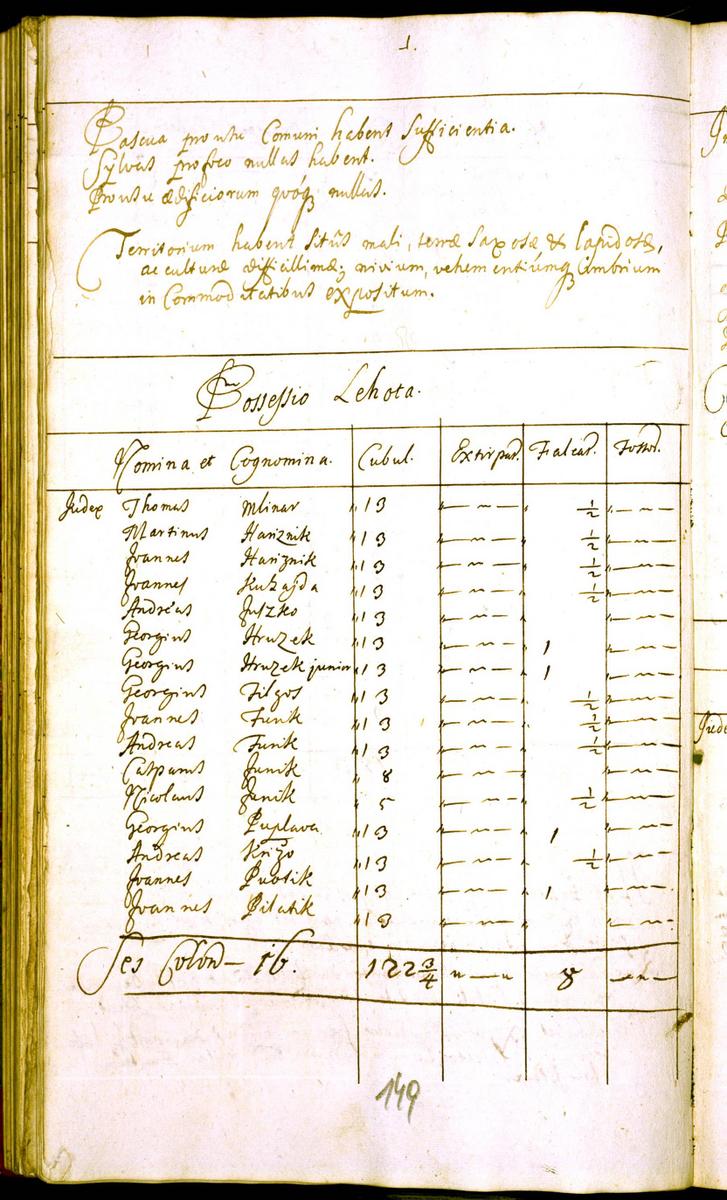 1.
Pascua pro usu Comuni habent sufficientia.
Sylvas pro foco nullas habent.
Pro usu ædificiorum quóq; nullas.
Territorium habent sitûs mali, terræ saxosæ & lapidosæ,
ac culturæ difficillimæ; nivium, vehementiúmq; imbrium
in Commoditatibus expositum.
Possessio Lehota.
Nomina et Cognomina. Cubul. Extirpat. Falcat. Fossor.
Judex Thomas Mlinar 13 — ½ —
Martinus Hariznik 13 — ½ —
Joannes Hariznik 13 — ½ —
Joannes Kuhajda 13 — ½ —
Andreas Juszko 13 — —
Georgius Hruzek 13 — 1 —
Georgius Hruzek junior 13 — 1 —
Georgius Filgos 13 — ½ —
Joannes Funik 13 — ½ —
Andreas Funik 13 — ½ —
Casparus Junik 8 — —
Nicolaus Junik 5 — ½ —
Georgius Puplava 13 — 1 —
Andreas Krizo 13 — ½ —
Joannes 13 — 1 —
Joannes Pilatik 13 — —
Ses Colon 16. 122¾ — 8 —
149